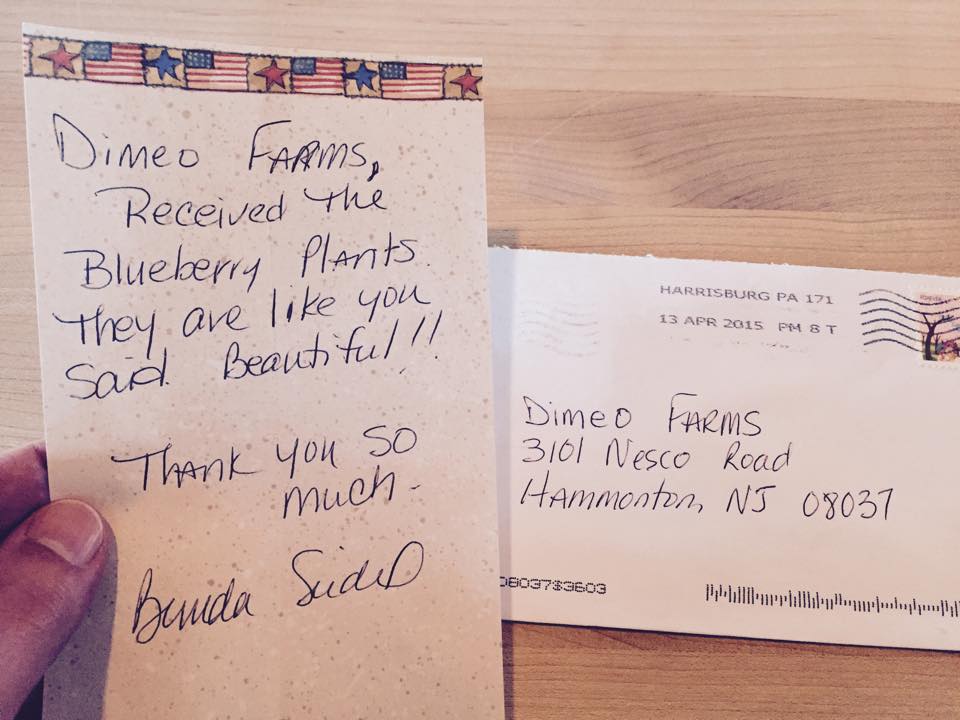 Dimeo Farms,
Received the
Blueberry Plants.
They are like you
said. Beautiful!!
Thank you so
much.
HARRISBURG PA 171
13 APR 2015 PM 8 T
Dimeo Farms
3101 Nesco Road
Hammonton, NJ 08037
08037$3603